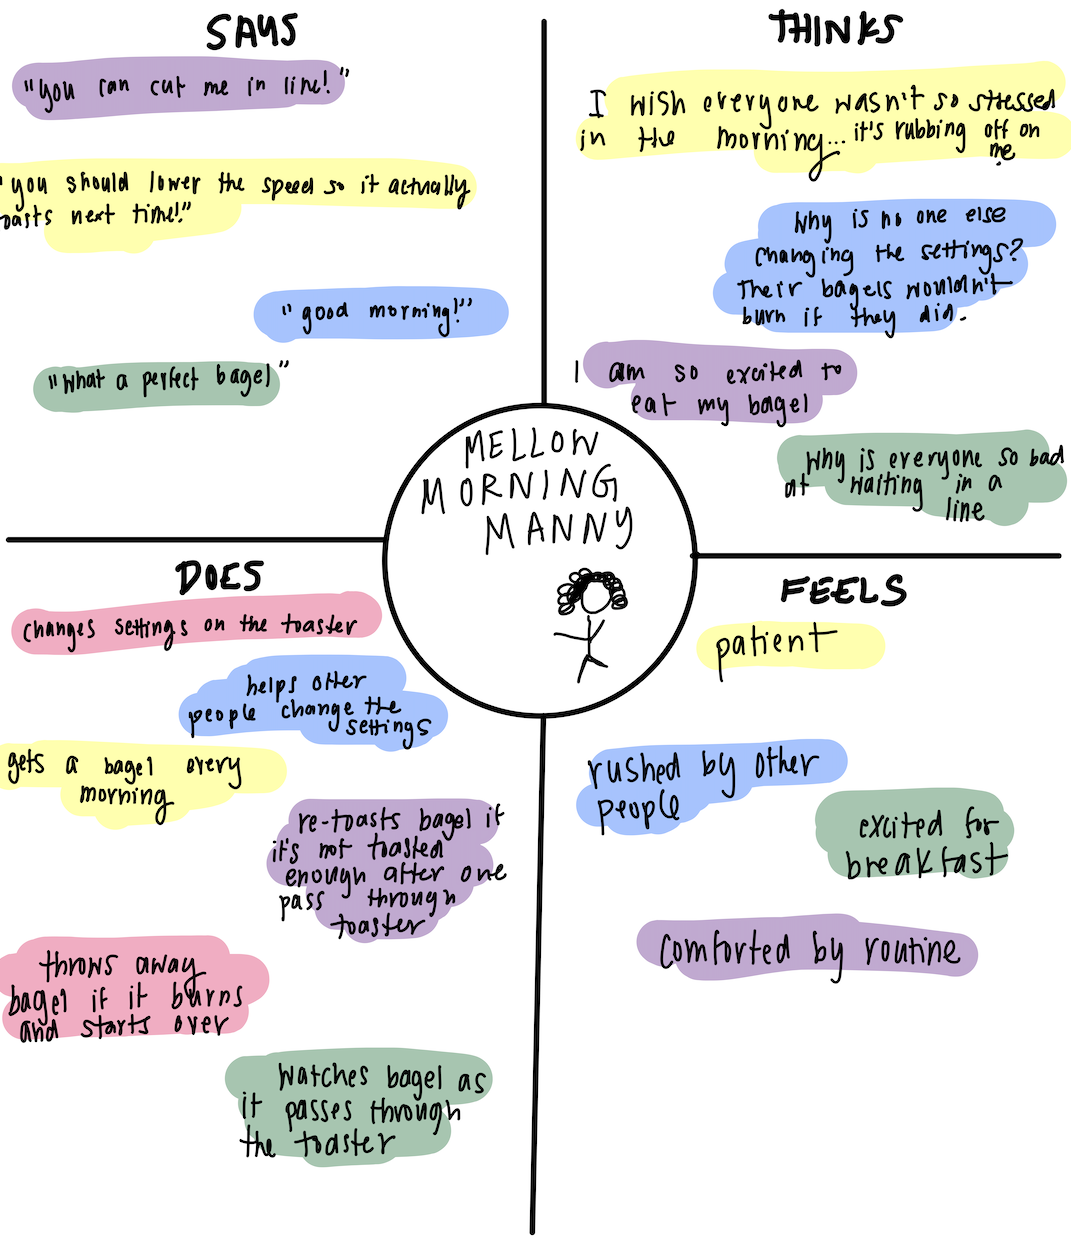 SAYS
"you can cut me in line!"
"you should lower the speed so it actually
oasts next time!"
"good morning!"
"What a perfect bagel"
THINKS
I wish everyone wasn't so stressed
in the morning... it's rubbing off on
me
Why is no one else
changing the settings?
Their bagels wouldn't
burn if they did.
I am so excited to
eat my bagel
Why is everyone so bad
at waiting in a
line
MELLOW
MORNING
MANNY
DOES
changes settings on the toaster
helps other
people change the
settings
gets a bagel every
morning
re-toasts bagel if
it's not toasted
enough after one
pass through
toaster
throws away
bagel if it burns
and starts over
Watches bagel as
it passes through
the toaster
FEELS
patient
rushed by other
people
excited for
breakfast
comforted by routine